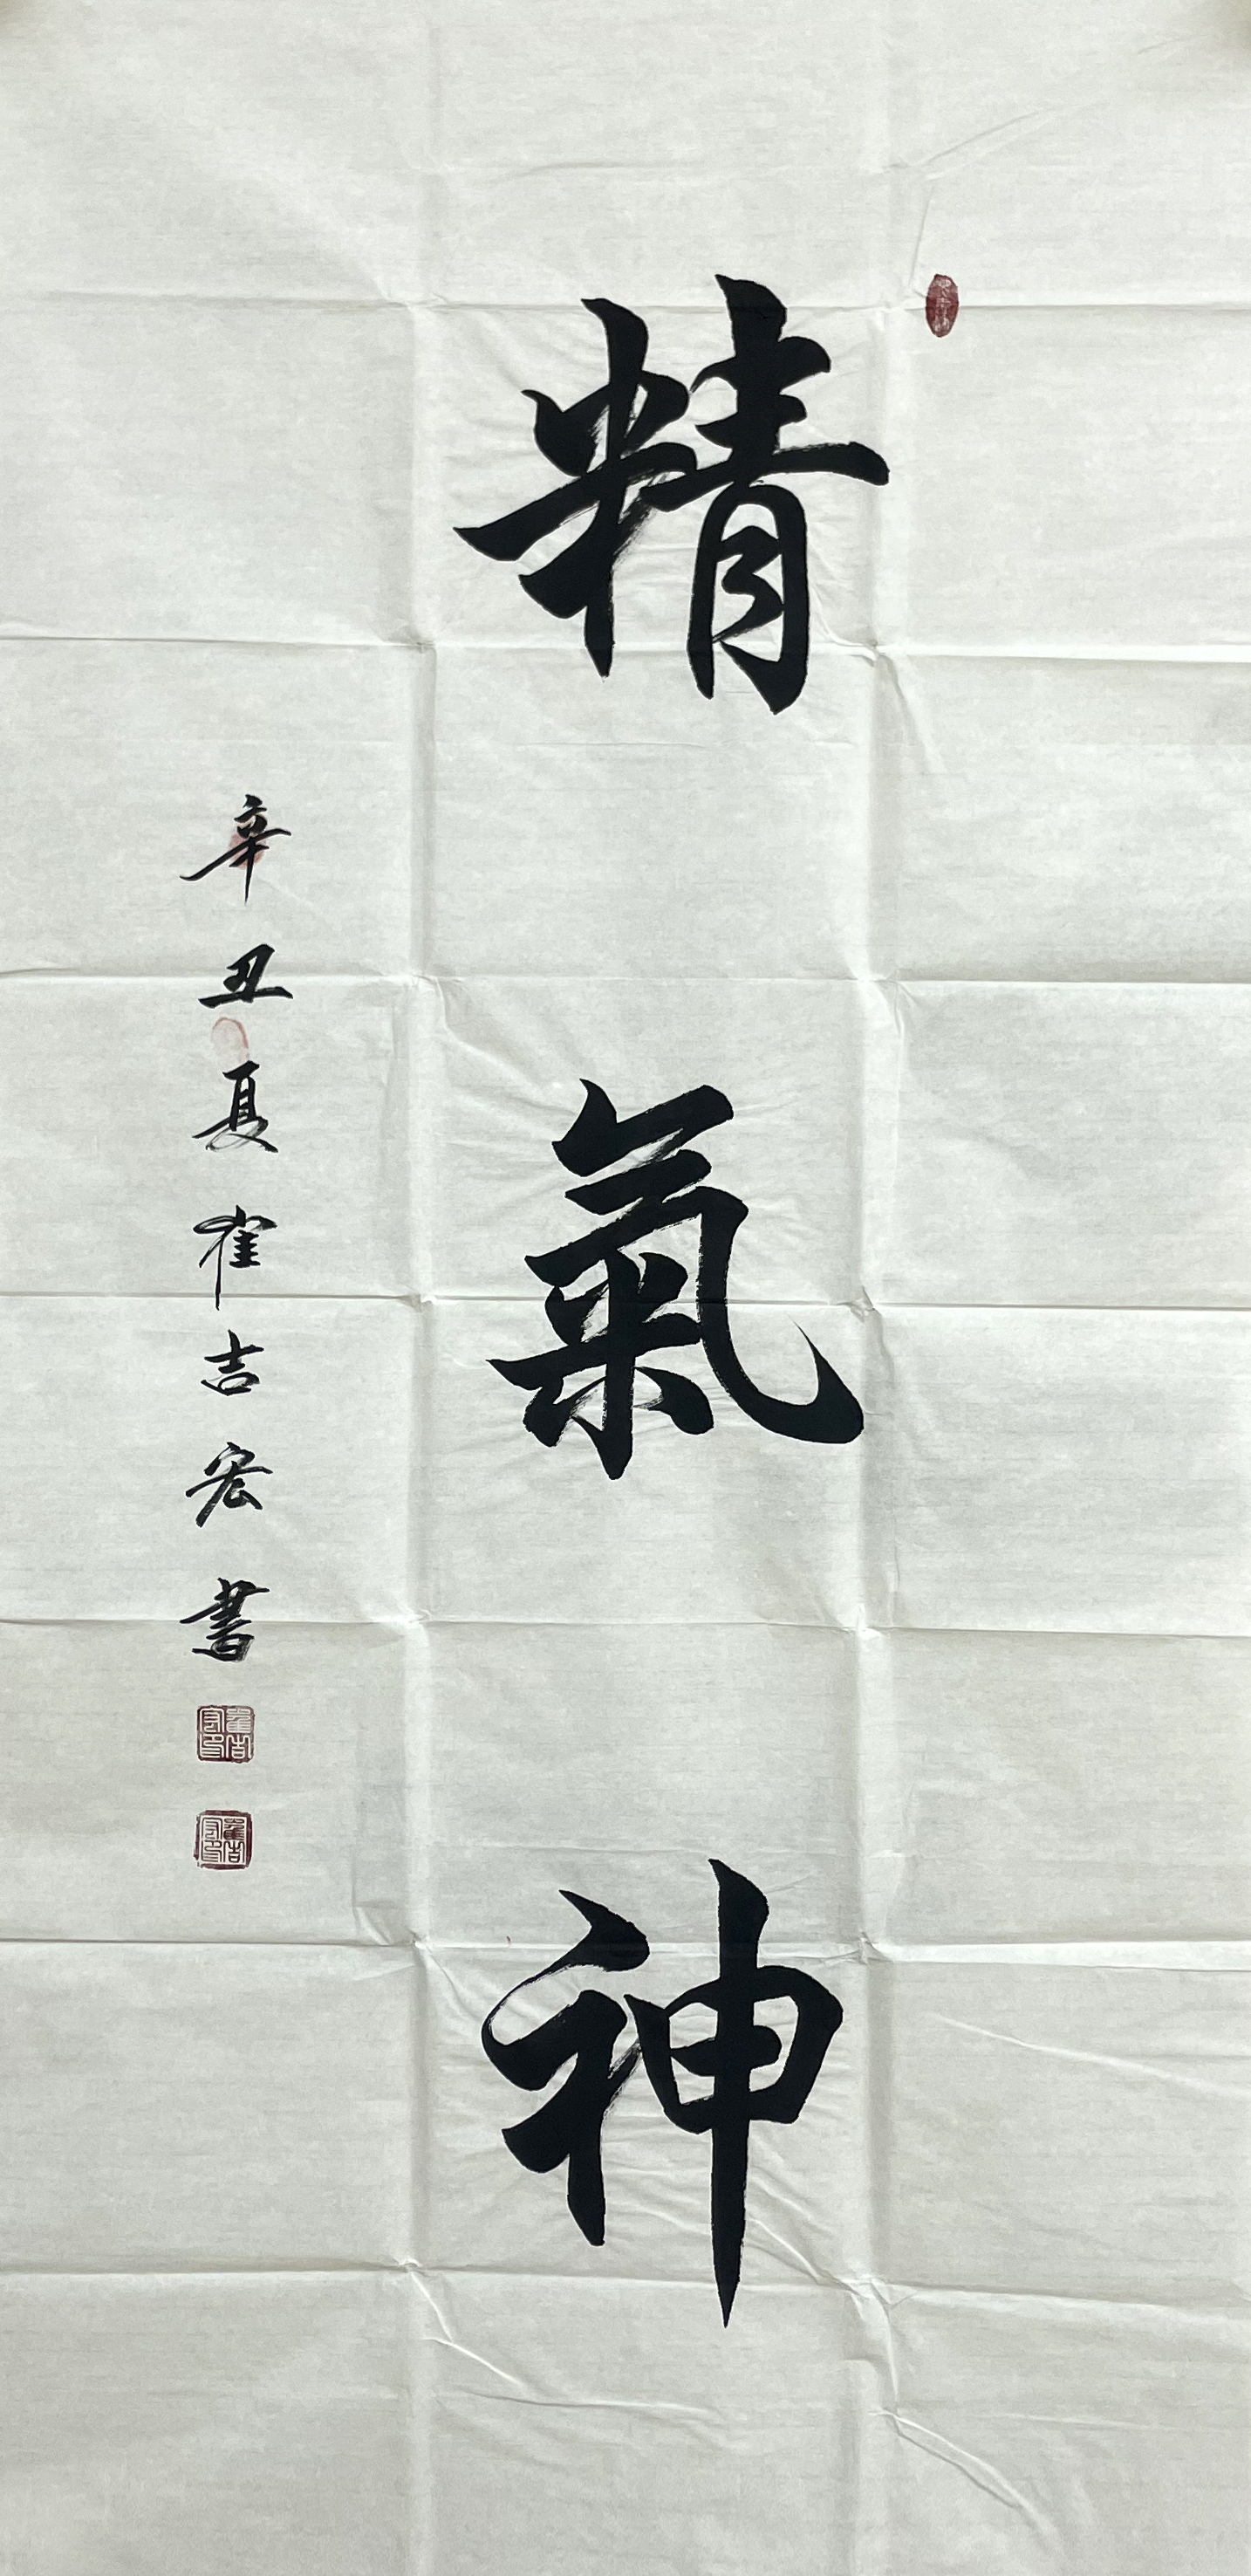 精氣神
辛丑夏崔吉宏書